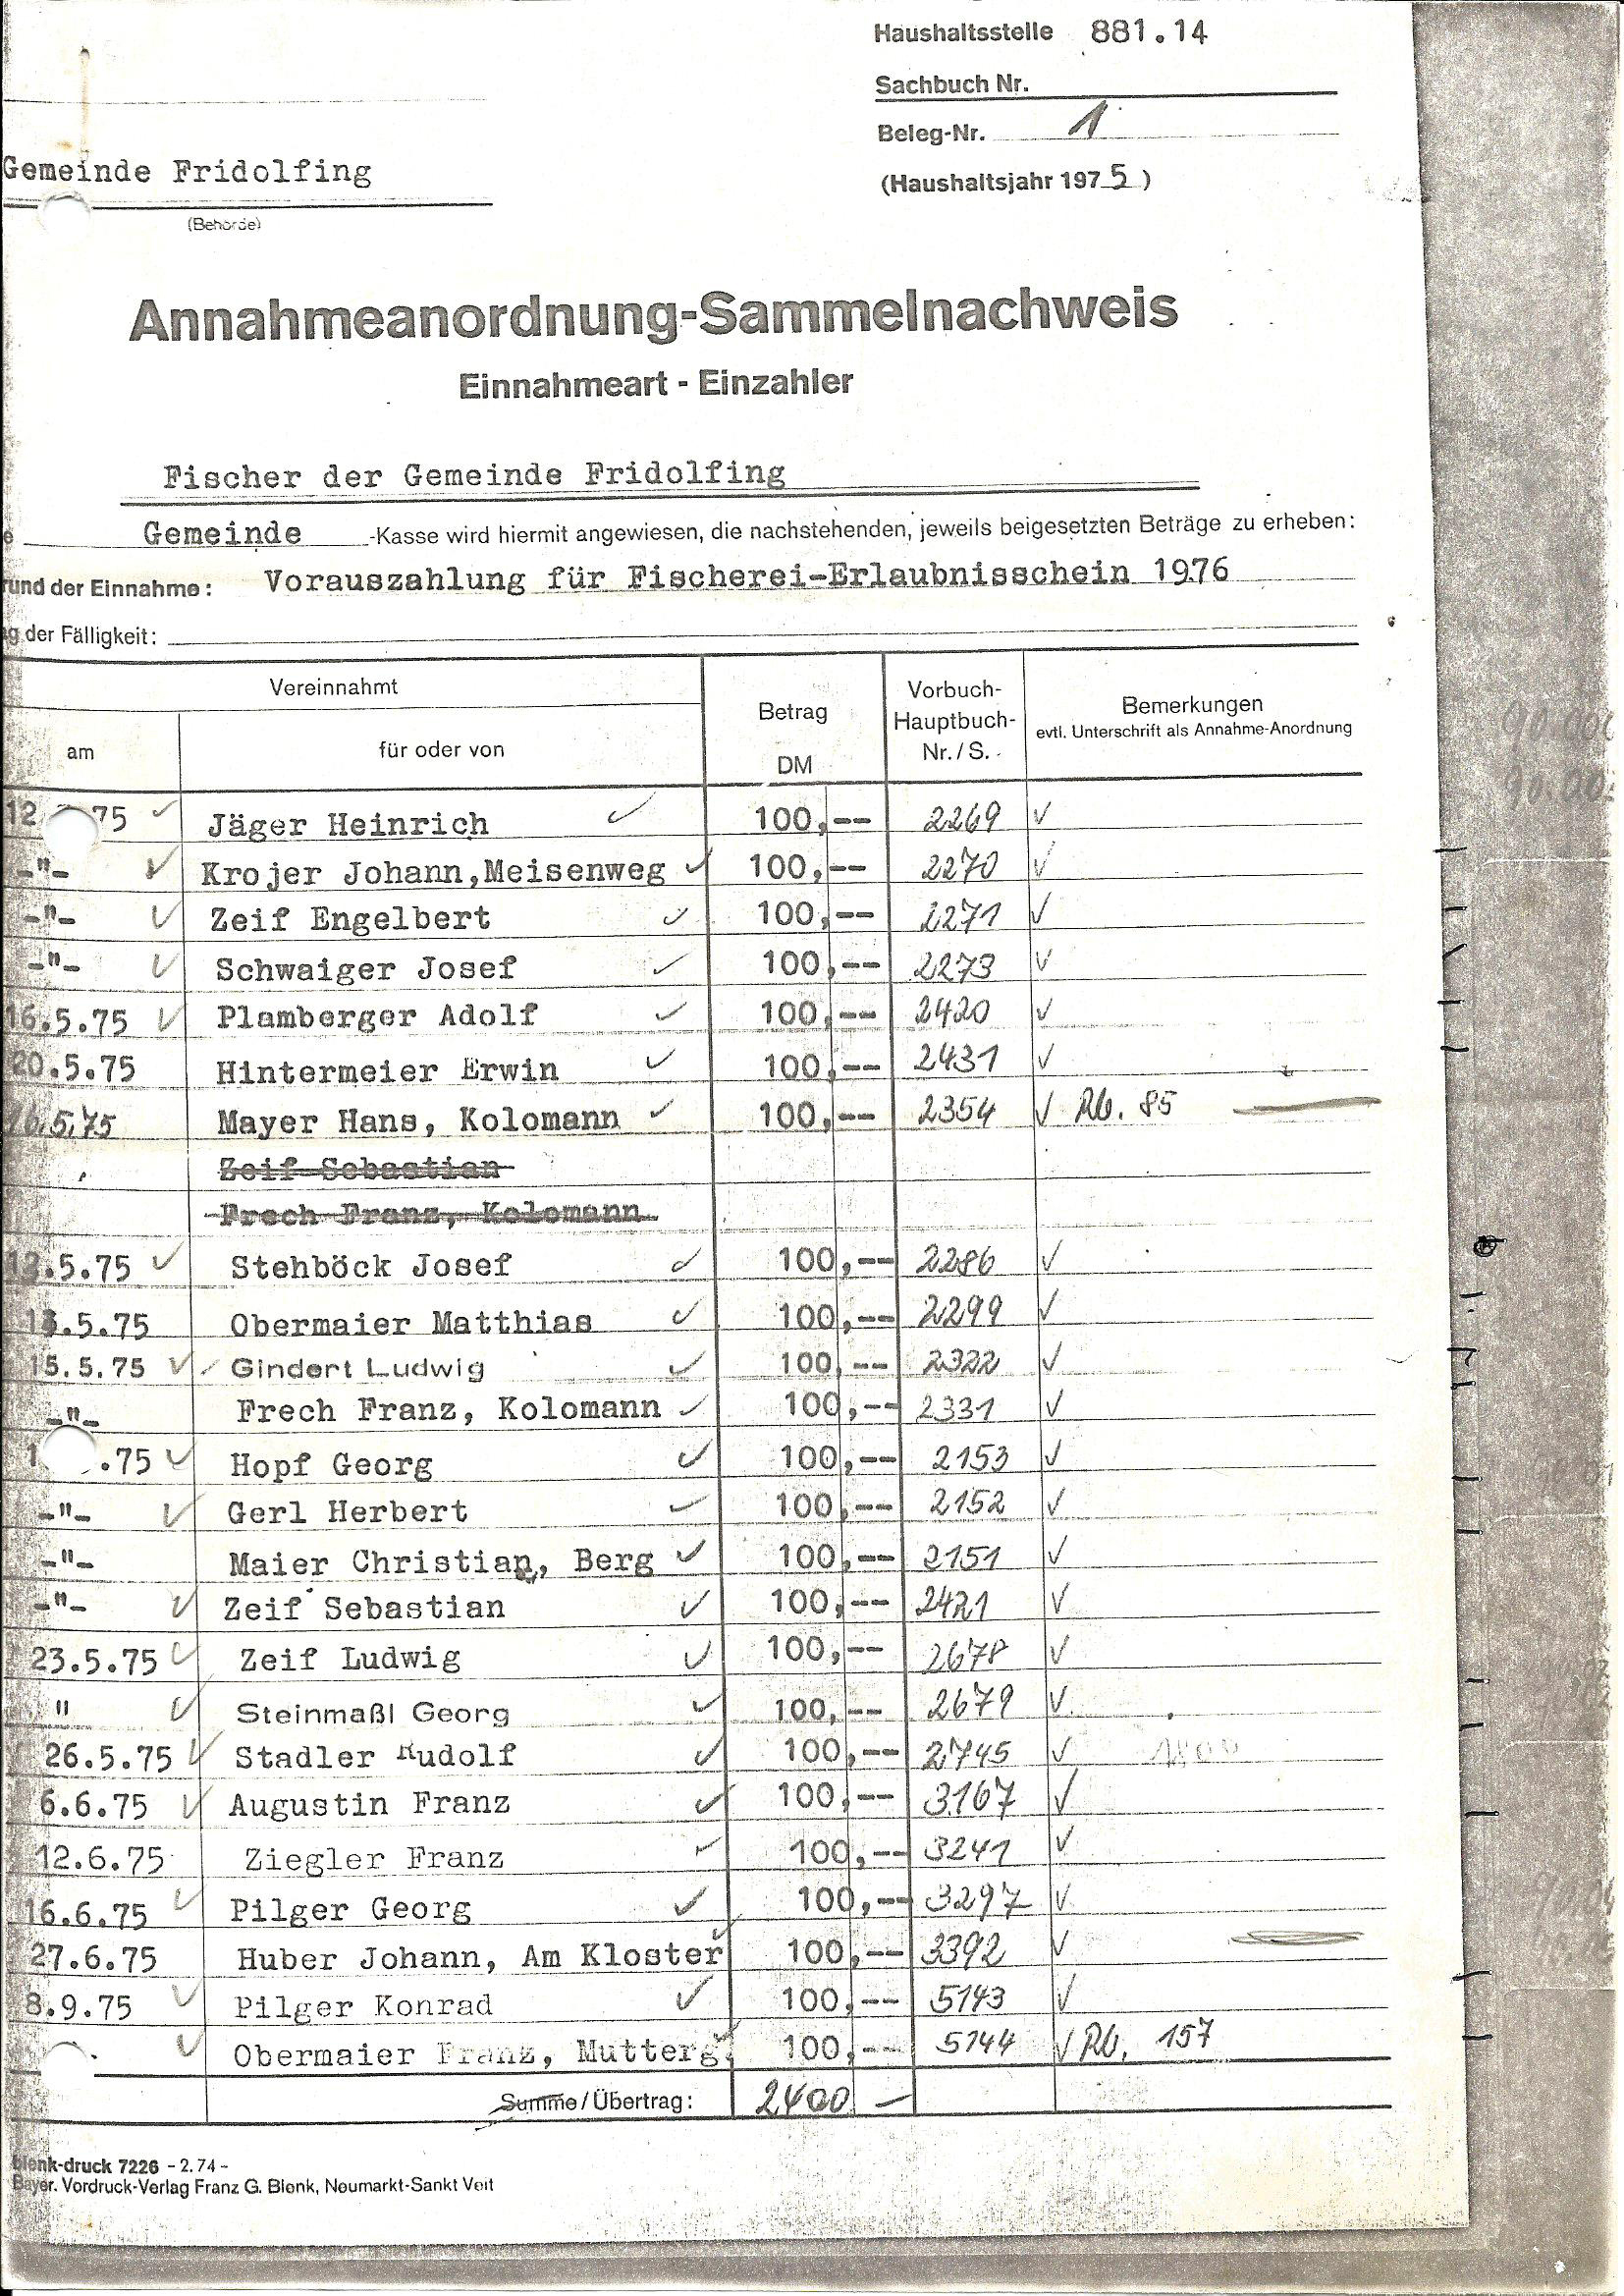 Haushaltsstelle 881.14
Sachbuch Nr.
Beleg-Nr. 1
Gemeinde Fridolfing
(Haushaltsjahr 1975)
(Behörde)
Annahmeanordnung-Sammelnachweis
Einnahmeart - Einzahler
Fischer der Gemeinde Fridolfing
e Gemeinde -Kasse wird hiermit angewiesen, die nachstehenden, jeweils beigesetzten Beträge zu erheben:
rund der Einnahme: Vorauszahlung für Fischerei-Erlaubnisschein 1976
g der Fälligkeit:
Vereinnahmt
am
für oder von
Betrag
DM
Vorbuch-
Hauptbuch-
Nr./S.
Bemerkungen
evtl. Unterschrift als Annahme-Anordnung
12. 75 ✓ Jäger Heinrich ✓ 100,-- 2269 ✓
-"- ✓ Krojer Johann,Meisenweg ✓ 100,-- 2270 ✓
-"- ✓ Zeif Engelbert ✓ 100,-- 2271 ✓
-"- ✓ Schwaiger Josef ✓ 100,-- 2273 ✓
16.5.75 ✓ Plamberger Adolf ✓ 100,-- 2420 ✓
20.5.75 Hintermeier Erwin ✓ 100,-- 2431 ✓
16.5.75 Mayer Hans, Kolomann ✓ 100,-- 2354 ✓ Rb. 85
Zeif Sebastian
Frech Franz, Kolomann
.5.75 ✓ Stehböck Josef ✓ 100,-- 2286 ✓
.5.75 Obermaier Matthias ✓ 100,-- 2299 ✓
15.5.75 ✓ Gindert Ludwig ✓ 100,-- 2322 ✓
-"- Frech Franz, Kolomann ✓ 100,-- 2331 ✓
1 .75 ✓ Hopf Georg ✓ 100,-- 2153 ✓
-"- ✓ Gerl Herbert ✓ 100,-- 2152 ✓
-"- Maier Christian, Berg ✓ 100,-- 2151 ✓
-"- ✓ Zeif Sebastian ✓ 100,-- 2421 ✓
23.5.75 ✓ Zeif Ludwig ✓ 100,-- 2678 ✓
" ✓ Steinmaßl Georg ✓ 100,-- 2679 ✓
26.5.75 ✓ Stadler Rudolf ✓ 100,-- 2745 ✓
6.6.75 ✓ Augustin Franz ✓ 100,-- 3167 ✓
12.6.75 Ziegler Franz ✓ 100,-- 3241 ✓
16.6.75 ✓ Pilger Georg ✓ 100,-- 3297 ✓
27.6.75 Huber Johann, Am Kloster ✓ 100,-- 3392 ✓
8.9.75 ✓ Pilger Konrad ✓ 100,-- 5143 ✓
✓ Obermaier Franz, Mutterg. ✓ 100,-- 5144 ✓ Rb. 157
Summe/Übertrag: 2400 -
blenk-druck 7226 - 2.74 -
Bayer. Vordruck-Verlag Franz G. Blenk, Neumarkt-Sankt Veit